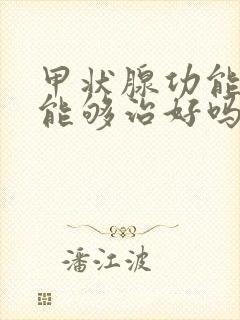 甲状腺功能
能够治好吗
潘江波